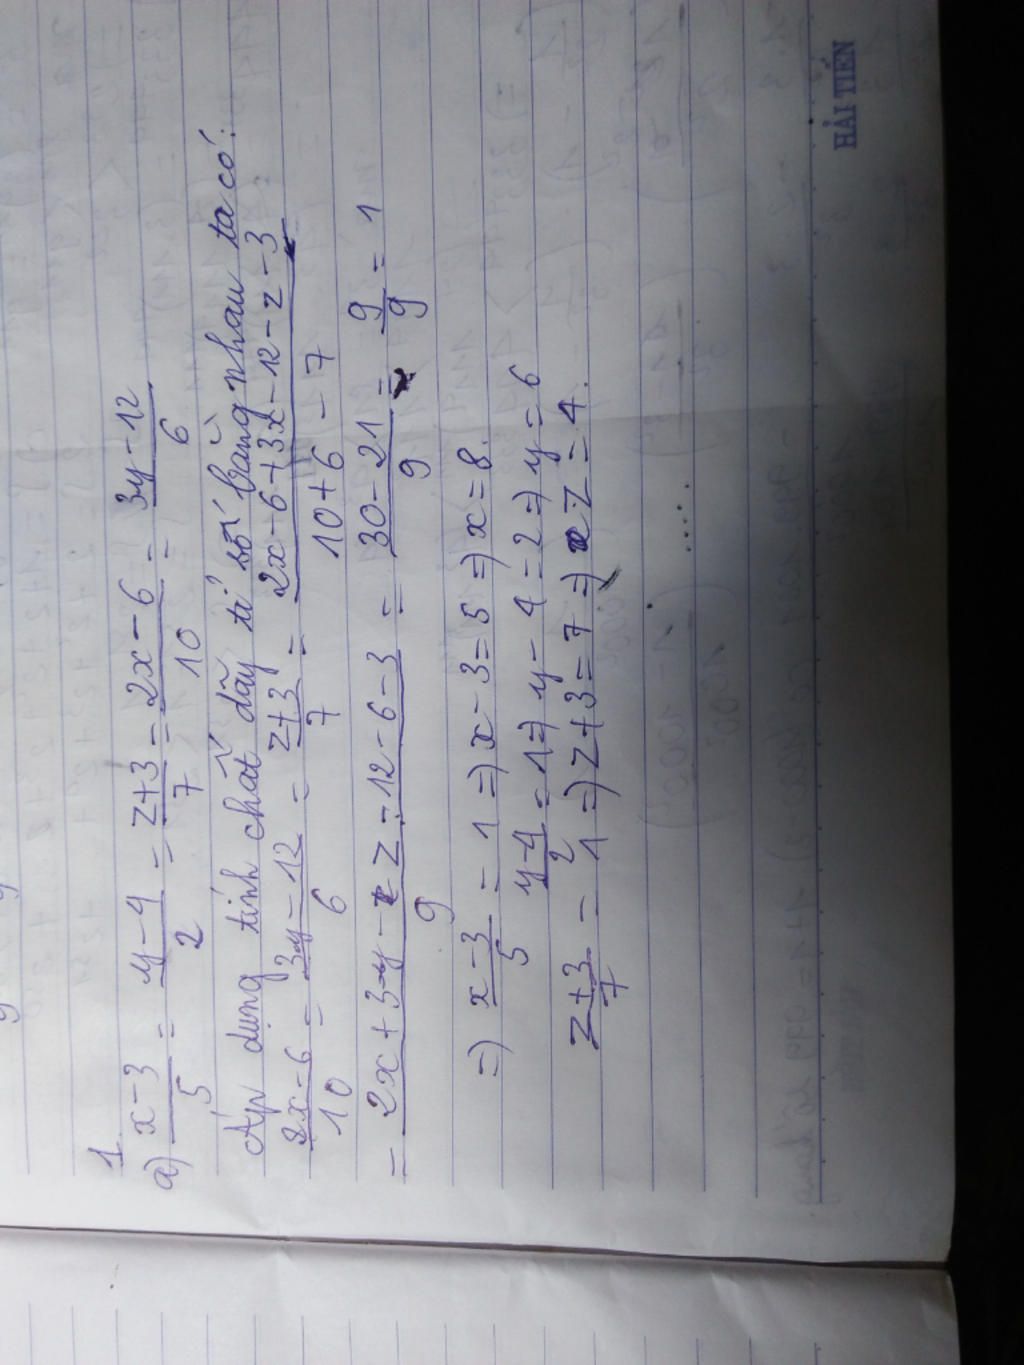 1
a) x-3/5 = y-4/2 = z+3/7 = 2x-6/10 = 3y-12/6
Áp dụng tính chất dãy tỉ số bằng nhau ta có:
2x-6/10 = 3y-12/6 = z+3/7 = 2x-6+3x-12-z-3/10+6-7
= 2x+3y-z-12-6-3/9 = 30-21/9 = 9/9 = 1
=) x-3/5 = 1 =) x-3=5 =) x=8.
y-4/2 = 1 =) y-4=2 =) y=6
z+3/7 = 1 =) z+3=7 =) z=4.
HẢI TIẾN